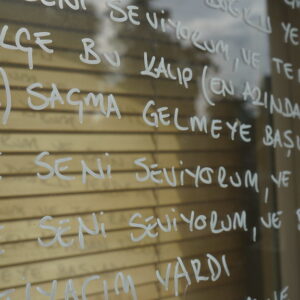 SENİ SEVİYORUM, VE TE
LÇE BU KALIP (EN AZINDA
) SAÇMA GELMEYE BAŞ
E SENİ SEVİYORUM, VE
E SENİ SEVİYORUM, VE B
İYACIM VARDI